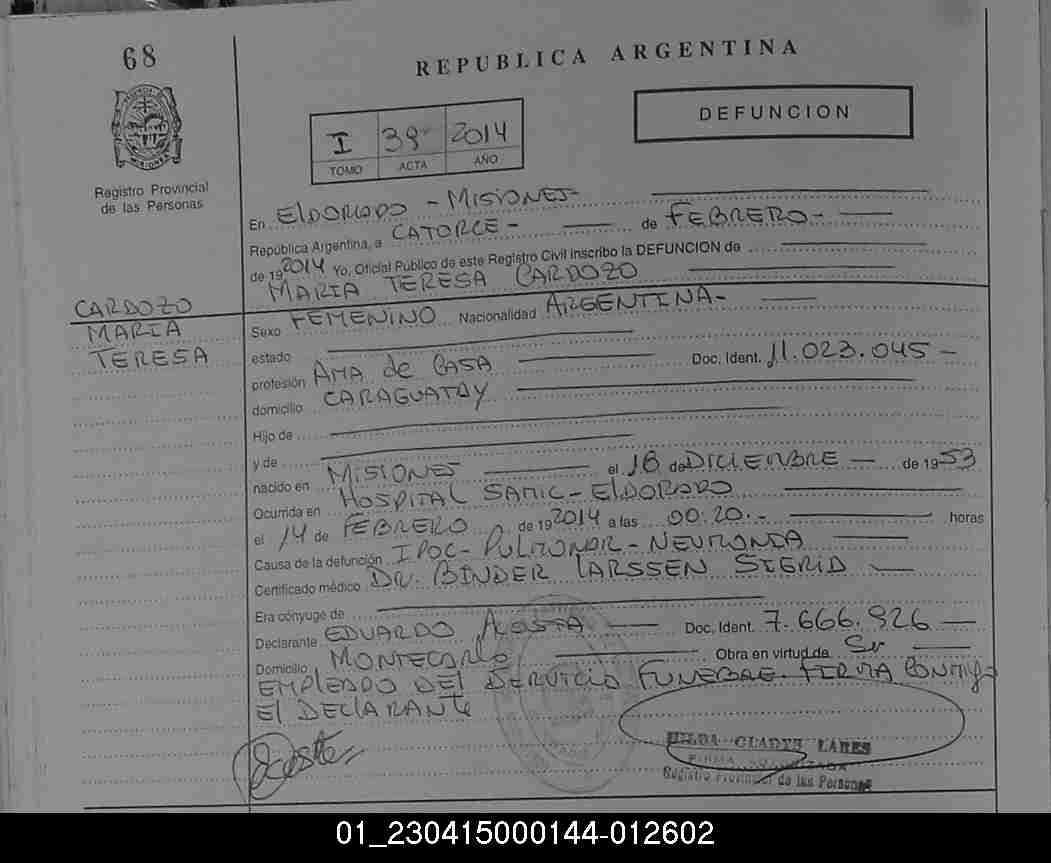 68
REPUBLICA ARGENTINA
DEFUNCION
I 39 2014
TOMO ACTA AÑO
Registro Provincial
de las Personas
En ELDORADO - MISIONES-
República Argentina, a CATORCE- de FEBRERO-
de 19 2014 Yo, Oficial Público de este Registro Civil inscribo la DEFUNCION de
MARIA TERESA CARDOZO
CARDOZO
MARIA
TERESA
Sexo FEMENINO Nacionalidad ARGENTINA-
estado
profesión AMA de CASA Doc. Ident. 11.023.045 -
domicilio CARAGUATAY
Hijo de
y de
nacido en MISIONES el 18 de DICIEMBRE - de 1953
Ocurrida en HOSPITAL SAMIC - ELDORADO
el 14 de FEBRERO de 19 2014 a las 00.20.- horas
Causa de la defunción IPOC- PULMONAR - NEUMONIA
Certificado médico DR. BINDER LARSSEN SIGRID
Era cónyuge de
Declarante EDUARDO ACOSTA Doc. Ident. 7.666.926 -
Domicilio MONTECARLO Obra en virtud de Su
EMPLEADO DEL SERVICIO FUNEBRE. FIRMA
EL DECLARANTE
HILDA GLADYS LARES
FIRMA AUTORIZADA
Registro Provincial de las Personas
01_230415000144-012602